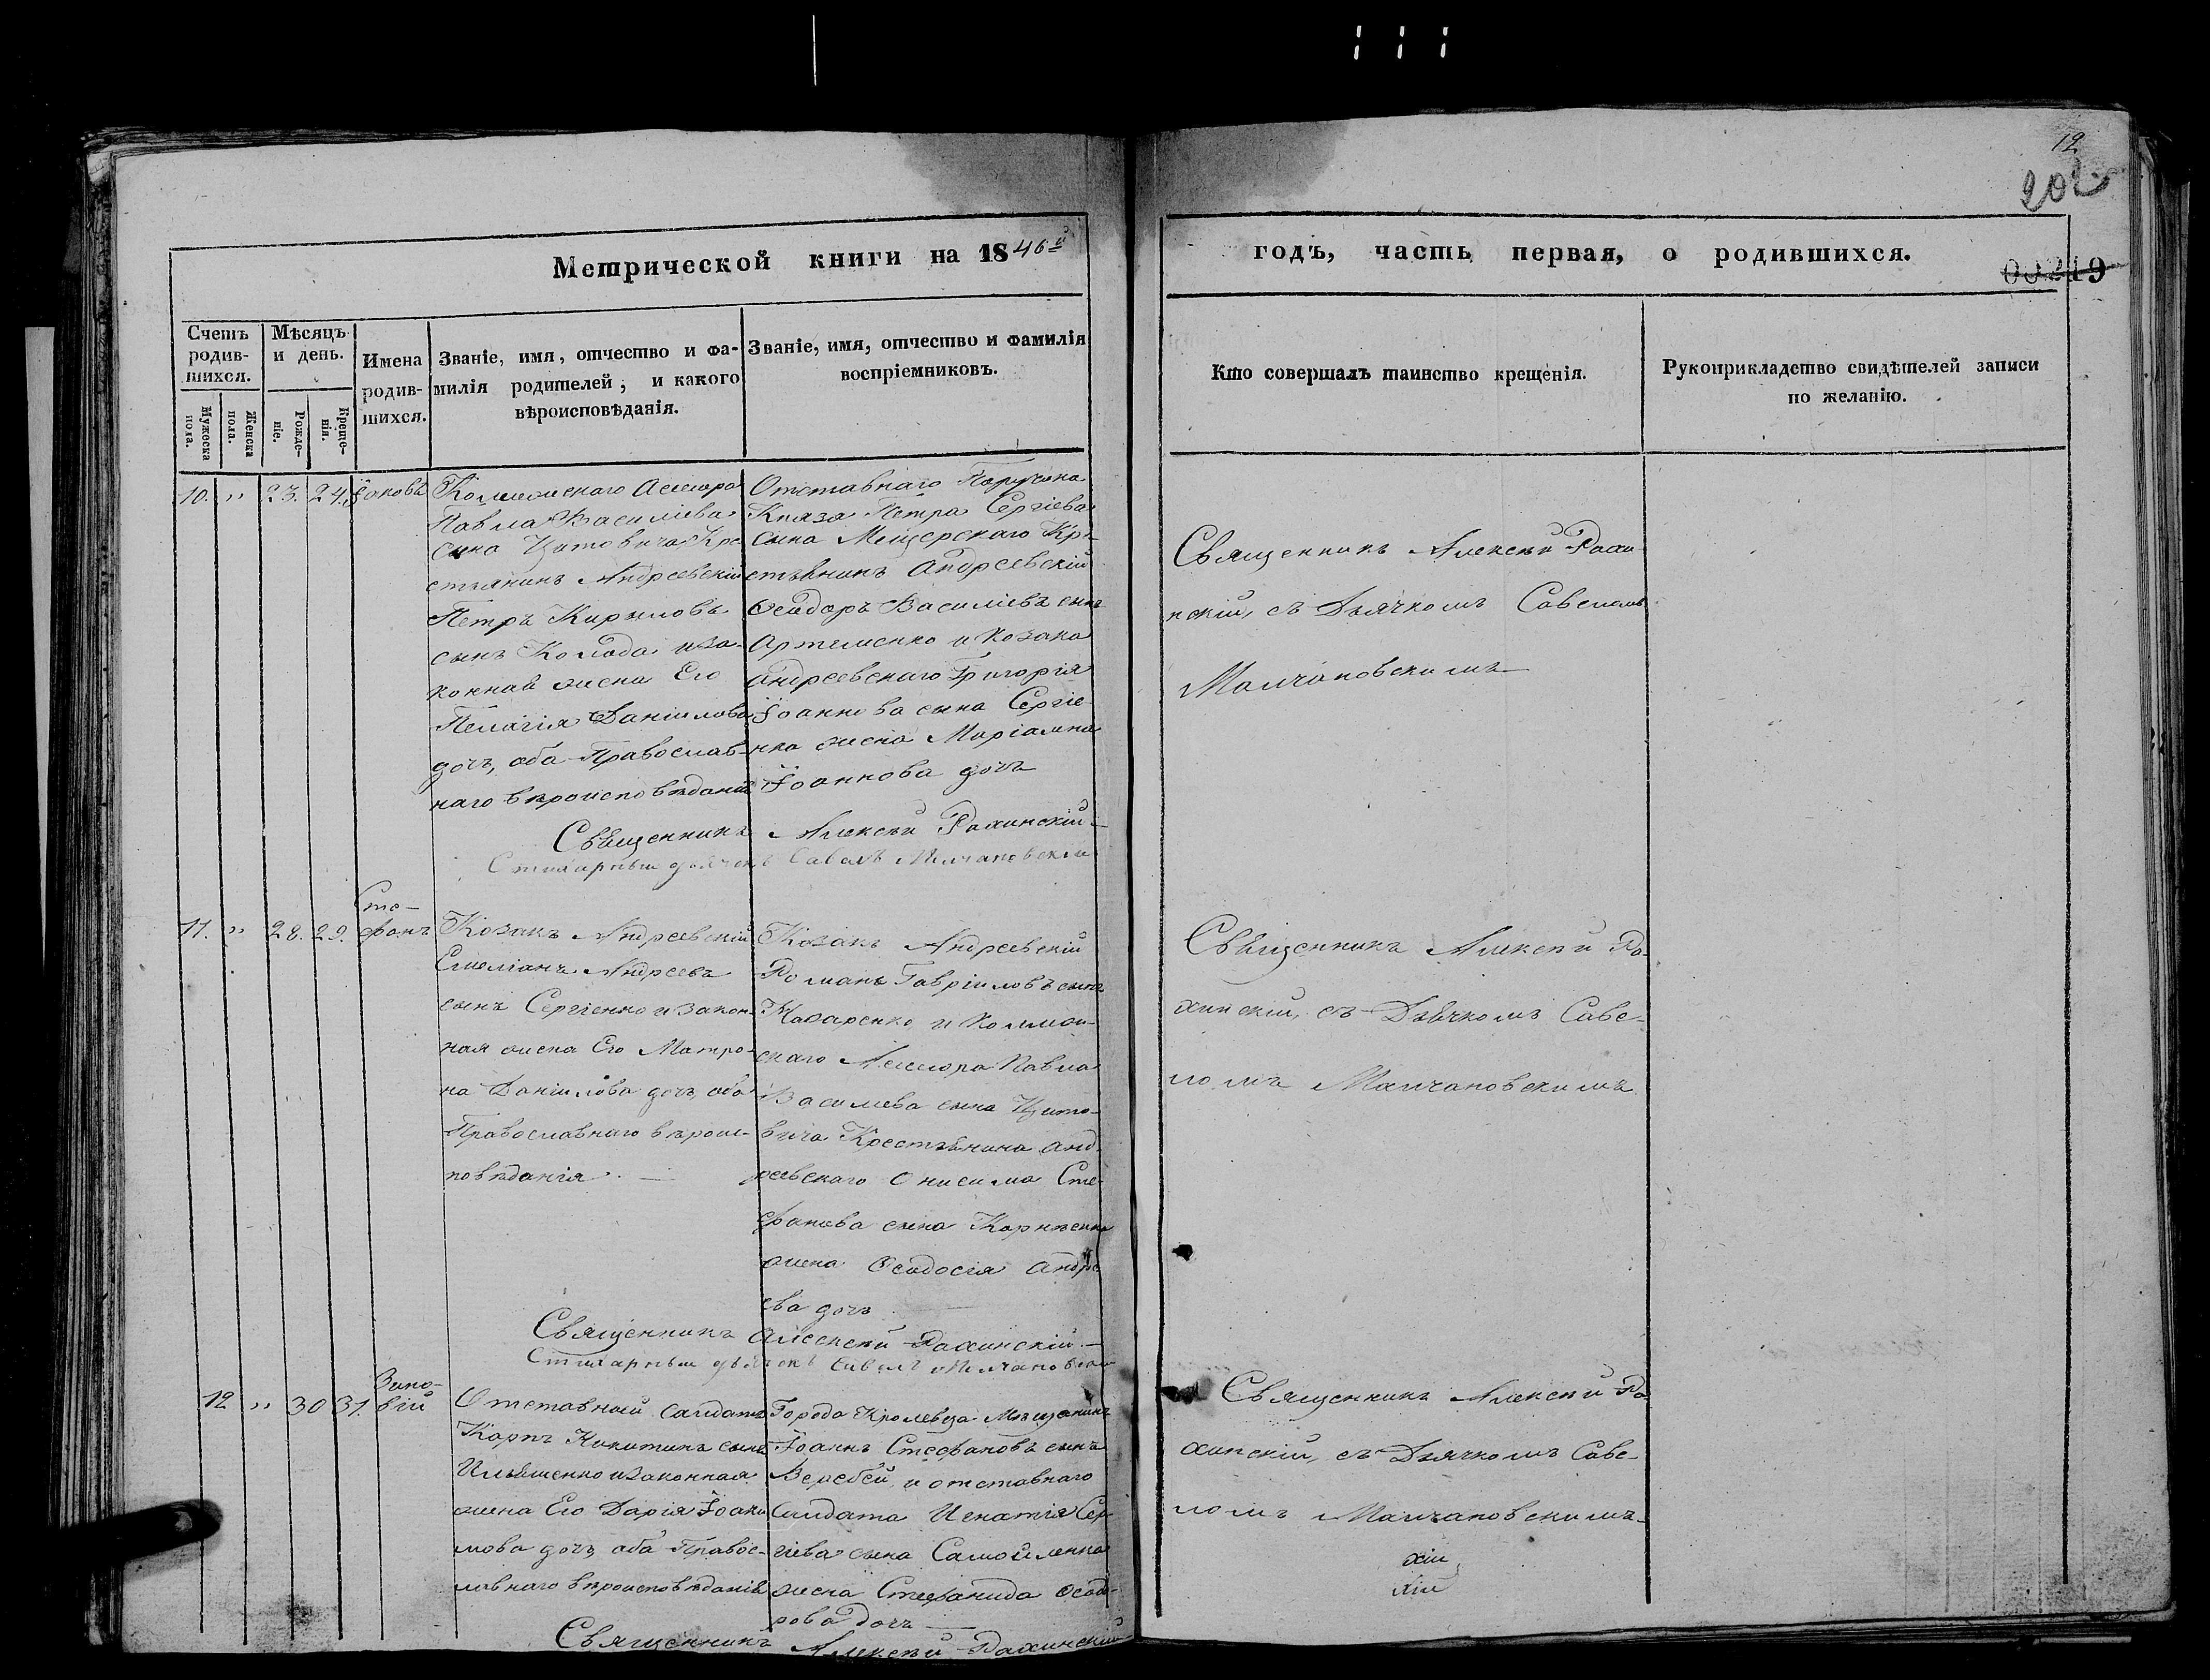 12
202
Метрической книги на 1846й
годъ, часть первая, о родившихся.
00219
Счетъ родив-шихся.
Мѣсяцъ и день.
Имена родив-шихся.
Званіе, имя, отчество и фа-
милія родителей, и какого
вѣроисповѣданія.
Званіе, имя, отчество и фамилія
воспріемниковъ.
Кто совершалъ таинство крещенія.
Рукоприкладство свидѣтелей записи
по желанію.
Мужеска пола.
Женска пола.
Рожде-ніе.
Креще-нія.
10. " 23. 24. Іаковъ
Коллежскаго Ассесора
Павла Василіева
сына Цитовича Кре
стьянинъ Андреевскій
Петръ Кириловъ
сынъ Коляда и за-
конная жена Его
Пелагія Даніилова
дочь, оба Православ-
наго вѣроисповѣданія
Отставнаго Поручика
Князя Петра Сергіева
сына Мещерскаго Кре-
стьянинъ Андреевскій
Ѳеодоръ Василіевъ сынъ
Артеменко и Козака
Андреевскаго Григорія
Іоаннова сына Сергіе-
нка жена Маріамна
Іоаннова дочь
Священникъ Алексѣй Рахинскій
Стихарный дьячекъ Савелъ Молчановскій
Священникъ Алексѣй Рахи-
нскій, съ Дьячкомъ Савеломъ
Молчановскимъ
11. " 28. 29. Сте-
фанъ
Козакъ Андреевскій
Емеліанъ Андреевъ
сынъ Сергіенко и закон-
ная жена Его Матро-
на Даніилова дочь, оба
Православнаго вѣроис-
повѣданія.
Козакъ Андреевскій
Романъ Гавріиловъ сынъ
и Коллеж-
скаго Ассесора Павла
Василіева сына Цито-
вича Крестьянина Анд-
реевскаго Онисима Сте-
фанова сына Корнѣенка
жена Ѳеодосія Андре
ева дочь
Священникъ Алексѣй Рахинскій
Стихарный дьячекъ Савелъ Молчановскій
Священникъ Алексѣй Ра-
хинскій, съ Дьячкомъ Саве-
ломъ Молчановскимъ
12 " 30 31. Зино-
вій
Отставный Салдатъ
Карпъ Никитинъ сынъ
Ильяшенко и законная
жена Его Дарія Іоаки
мова дочь, оба Правос-
лавнаго вѣроисповѣданія
Города Кролевца Мѣщанинъ
Іоаннъ Стефановъ сынъ
Веребей, и отставнаго
Салдата Игнатія Сер-
гіева сына Самойленка
жена Стефанида Ѳеод-
рова дочь
Священникъ Алексѣй Рахинскій
Священникъ Алексѣй Ра
хинскій, съ Дьячкомъ Саве-
ломъ Молчановскимъ
хій
хій